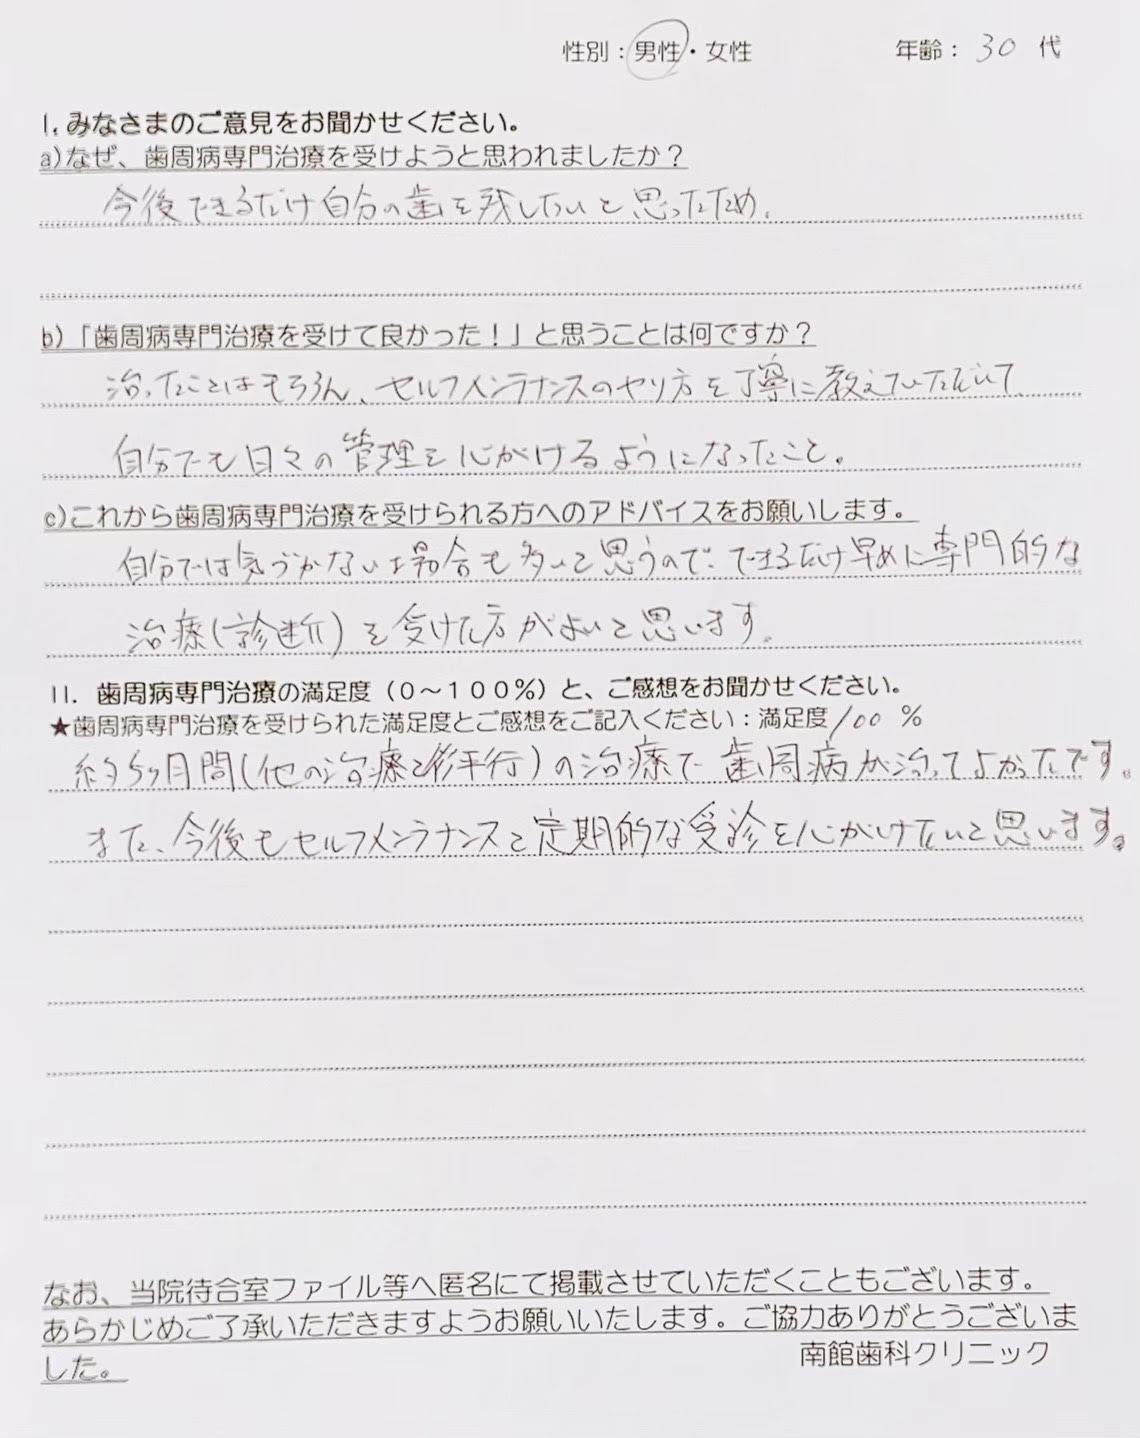 性別：男性・女性　年齢：30 代
I. みなさまのご意見をお聞かせください。
a)なぜ、歯周病専門治療を受けようと思われましたか？
今後できるだけ自分の歯を残したいと思ったため。
b)「歯周病専門治療を受けて良かった！」と思うことは何ですか？
治ったことはもちろん、セルフメンテナンスのやり方を丁寧に教えていただいて
自分でも日々の管理を心がけるようになったこと。
c)これから歯周病専門治療を受けられる方へのアドバイスをお願いします。
自分では気づかない場合も多いと思うので、できるだけ早めに専門的な
治療(診断)を受けた方がよいと思います。
II. 歯周病専門治療の満足度（０～１００％）と、ご感想をお聞かせください。
★歯周病専門治療を受けられた満足度とご感想をご記入ください：満足度100 ％
約5ヶ月間(他の治療と並行)の治療で歯周病が治ってよかったです。
また、今後もセルフメンテナンスと定期的な受診を心がけたいと思います。
なお、当院待合室ファイル等へ匿名にて掲載させていただくこともございます。
あらかじめご了承いただきますようお願いいたします。ご協力ありがとうございま
した。
南館歯科クリニック